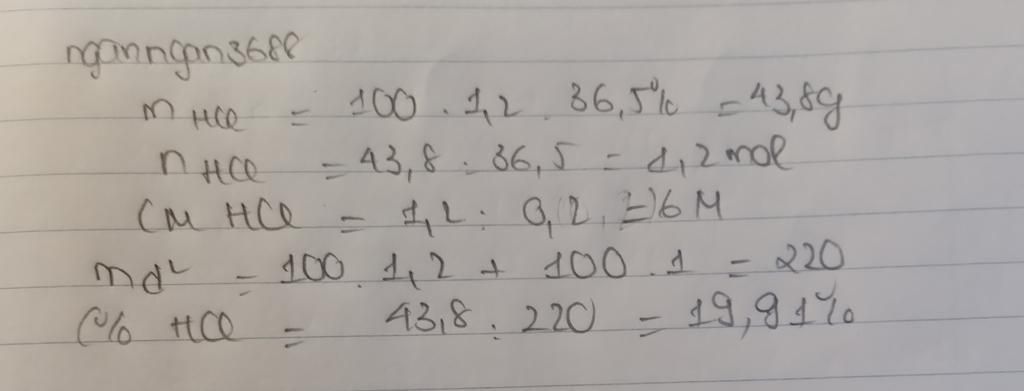 nganngan3688
m HCl = 100 . 1,2 . 36,5% = 43,8g
n HCl = 43,8 : 36,5 = 1,2 mol
CM HCl = 1,2 : 0,2 = 6 M
md² = 100 . 1,2 + 100 . 1 = 220
C% HCl = 43,8 : 220 = 19,91%